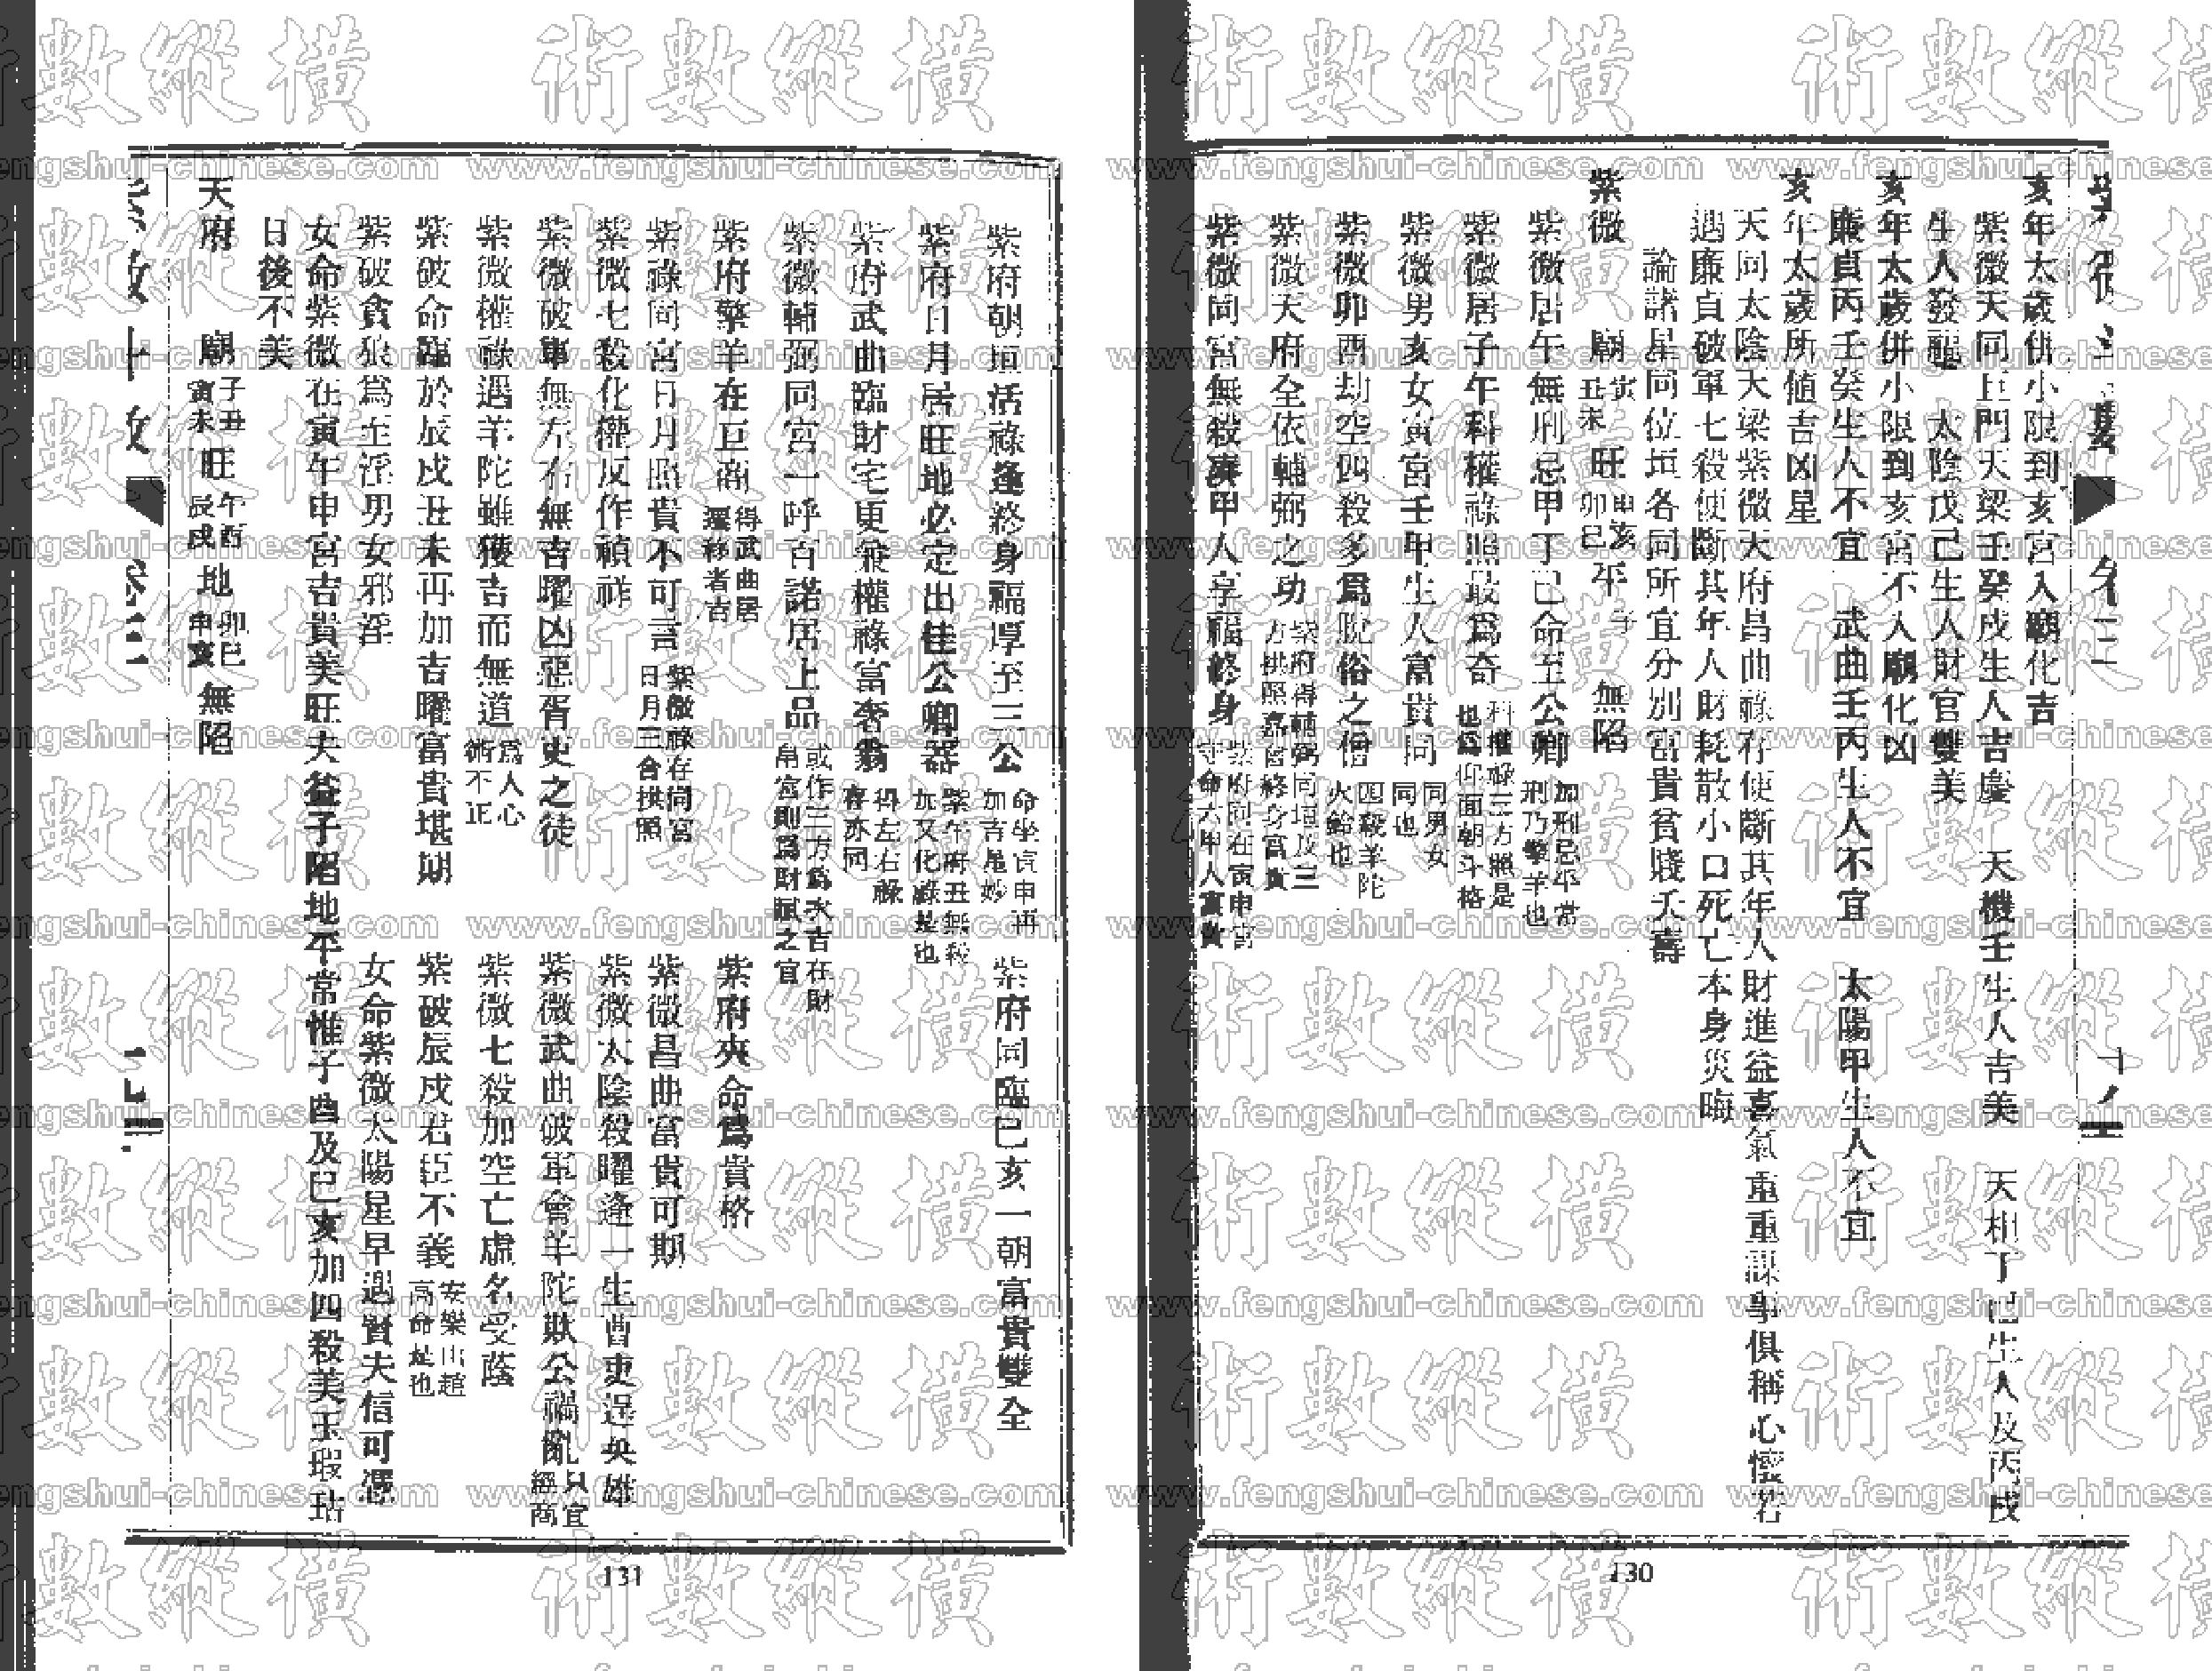 亥年太歲併小限到亥宮入廟化吉
紫微天同巨門天梁壬癸戌生人吉慶 天機壬生人吉美 天相丁巳生人及丙戌
生人發福 太陰戊己生人財官雙美
亥年太歲併小限到亥宮不入廟化凶
廉貞丙壬癸生人不宜 武曲壬丙生人不宜 太陽甲生人不宜
亥年太歲所值吉凶星
天同太陰天梁紫微天府昌曲祿存便斷其年人財進益喜氣重重謀事俱稱心懷若
遇廉貞破軍七殺便斷其年人財耗散小口死亡本身災晦
論諸星同位垣各同所宜分別富貴貧賤夭壽
紫微 廟寅丑未 旺申亥卯巳 平子 無陷
紫微居午無刑忌甲丁己命至公卿 加刑忌平常刑乃擎羊也
紫微居子午科權祿照最為奇 科權祿三方照是也為仰面朝斗格
紫微男亥女寅宮壬甲生人富貴同 同男女同也
紫微卯酉劫空四殺多為脫俗之僧 四殺羊陀火鈴也
紫微天府全依輔弼之功 紫府得輔弼同垣及三方拱照嘉會終身富貴
紫微同宮無殺湊甲人享福終身 紫府同在寅申宮守命六甲人富貴
130
紫府朝垣活祿逢終身福厚至三公 命坐寅申再加吉尾妙 紫府同臨巳亥一朝富貴雙全
紫府日月居旺地必定出佳公卿器 紫午府丑無殺加又化祿是也
紫府武曲臨財宅更兼權祿富奢翁 得左右祿存亦同
紫微輔弼同宮一呼百諾居上品 或作三方為次吉在財帛宮則為財賦之官
紫府擎羊在巨商 得武曲居遷移者吉 紫府夾命為貴格
紫祿同宮日月照貴不可言 紫微祿存同宮日月三合拱照 紫微昌曲富貴可期
紫微七殺化權反作禎祥 紫微太陰殺曜逢一生曹吏逞英雄
紫微破軍無左右無吉曜凶惡胥吏之徒 紫微武曲破軍會羊陀欺公禍亂 只宜經商
紫微權祿遇羊陀雖獲吉而無道 為人心術不正 紫微七殺加空亡虛名受蔭
紫破命臨於辰戌丑未再加吉曜富貴堪期 紫破辰戌君臣不義 安樂山趙高命是也
紫破貪狼為至淫男女邪淫 女命紫微太陽星早遇賢夫信可憑
女命紫微在寅午申宮吉貴美旺夫益子陷地平常惟子酉及巳亥加四殺美玉瑕玷
日後不美
天府 廟子丑寅未 旺午酉辰戌 地卯巳申亥 無陷
131
術數縱橫
www.fengshui-chinese.com